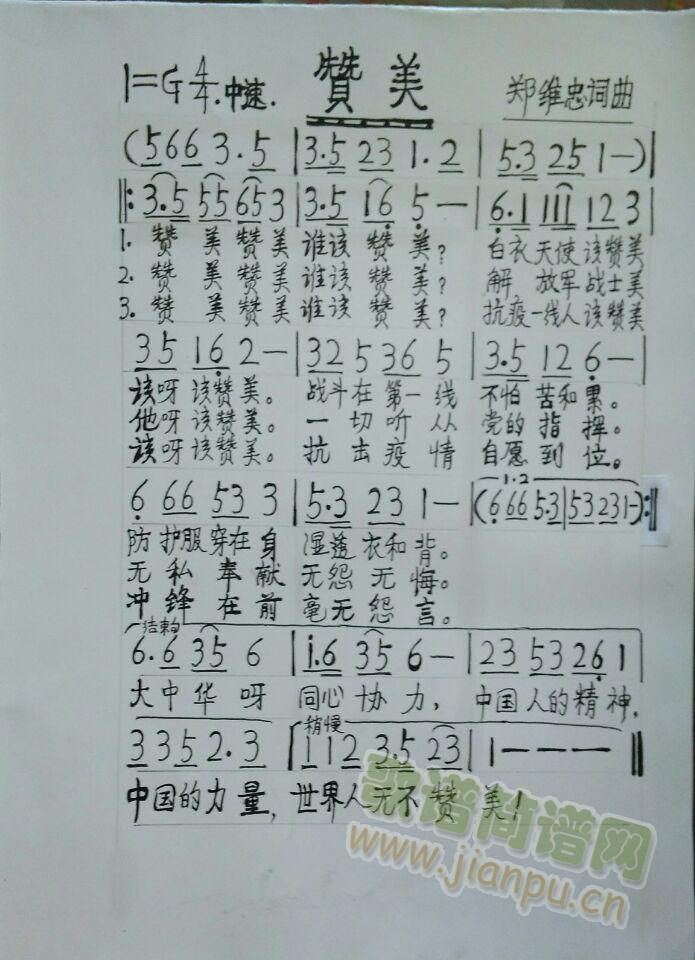 1=G 4/4 中速. 贊美 郑维忠词曲
(5 6 6 3. 5 | 3.5 23 1. 2 | 5.3 25 1 —)
‖: 3.5 55 65 3 | 3.5 16 5 — | 6.1 111 12 3
1. 赞 美 赞美 谁该 赞 美? 白衣天使该赞美
2. 赞 美 赞美 谁该 赞 美? 解 放军战士美
3. 赞 美 赞美 谁该 赞 美? 抗疫一线人该赞美
35 16 2 — | 32 5 36 5 | 3.5 12 6 —
该呀 该赞美。 战斗在第一线 不怕 苦和 累。
他呀 该赞美。 一切听从 党的 指 挥。
该呀该赞美。 抗击疫情 自愿到位。
6 66 53 3 | 5.3 23 1 — | (6 66 53 | 53 231 —) :‖
1.2
防 护服穿在 身 湿透 衣和 背。
无 私 奉 献 无怨 无 悔。
冲 锋 在 前 毫无 怨 言。
结束句
6. 6 35 6 | i.6 35 6 — | 23 53 26 1
大中华呀 同心协力, 中国人的精神,
稍慢
3 3 5 2. 3 | 1 1 2 3.5 23 | 1 — — — ‖
中国的力量, 世界人无不赞 美!
歌谱简谱网
www.jianpu.cn